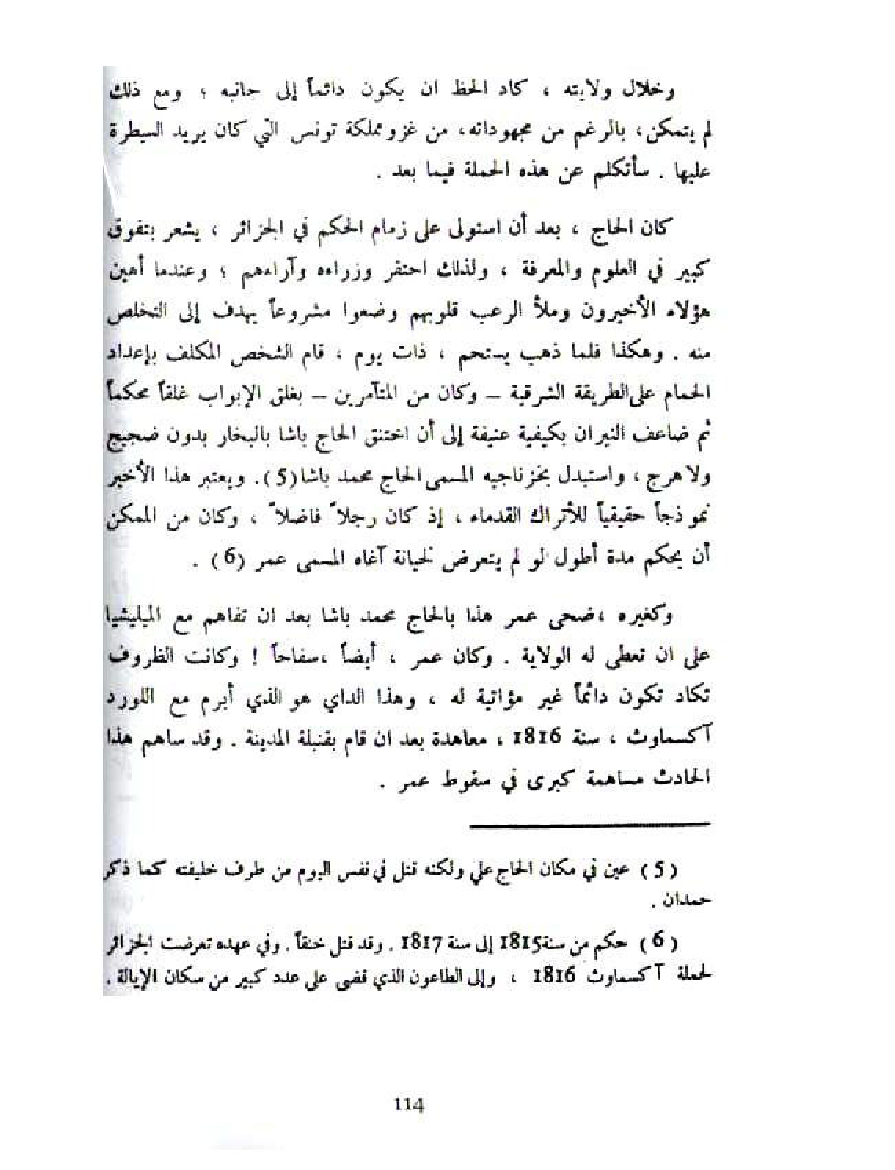 وخلال ولايته ، كاد الحظ ان يكون دائماً إلى جانبه ؛ ومع ذلك
لم يتمكن، بالرغم من مجهوداته، من غزو مملكة تونس التي كان يريد السيطرة
عليها . سأتكلم عن هذه الحملة فيما بعد .
كان الحاج ، بعد أن استولى على زمام الحكم في الجزائر ، يشعر بتفوق
كبير في العلوم والمعرفة ، ولذلك احتقر وزراءه وآراءهم ؛ وعندما أهين
هؤلاء الأخيرون وملأ الرعب قلوبهم وضعوا مشروعاً يهدف إلى التخلص
منه . وهكذا فلما ذهب يستحم ، ذات يوم ، قام الشخص المكلف بإعداد
الحمام على الطريقة الشرقية – وكان من المتآمرين – بغلق الإبواب غلقاً محكماً
ثم ضاعف النيران بكيفية عنيفة إلى أن اختنق الحاج باشا بالبخار بدون ضجيج
ولا هرج ، واستبدل بخزناجيه المسمى الحاج محمد باشا (5) . ويعتبر هذا الأخير
نموذجاً حقيقياً للأتراك القدماء ، إذ كان رجلاً فاضلاً ، وكان من الممكن
أن يحكم مدة أطول لو لم يتعرض لخيانة آغاه المسمى عمر (6) .
وكغيره ،ضحى عمر هذا بالحاج محمد باشا بعد ان تفاهم مع الميليشيا
على ان تعطى له الولاية . وكان عمر ، أيضاً ،سفاحاً ! وكانت الظروف
تكاد تكون دائماً غير مؤاتية له ، وهذا الداي هو الذي أبرم مع اللورد
آكسماوث ، سنة 1816 ، معاهدة بعد ان قام بقنبلة المدينة . وقد ساهم هذا
الحادث مساهمة كبرى في سقوط عمر .
(5) عين في مكان الحاج علي ولكنه قتل في نفس اليوم من طرف خليفته كما ذكر
حمدان .
(6) حكم من سنة 1815 إلى سنة 1817 . وقد قتل خنقاً . وفي عهده تعرضت الجزائر
لحملة آكسماوث 1816 ، وإلى الطاعون الذي قضى على عدد كبير من سكان الإيالة .
114